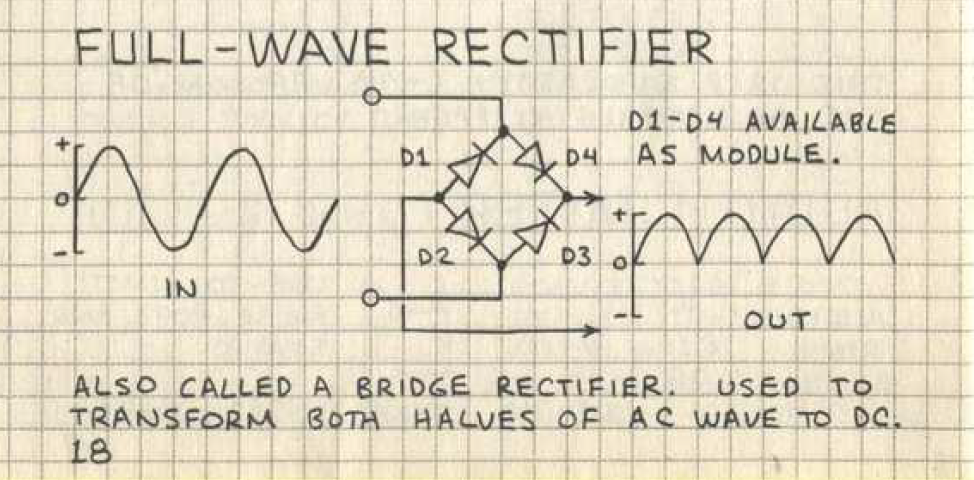 FULL-WAVE RECTIFIER
D1-D4 AVAILABLE
AS MODULE.
D1
D4
D2
D3
+
0
-
IN
+
0
-
OUT
ALSO CALLED A BRIDGE RECTIFIER. USED TO
TRANSFORM BOTH HALVES OF AC WAVE TO DC.
18